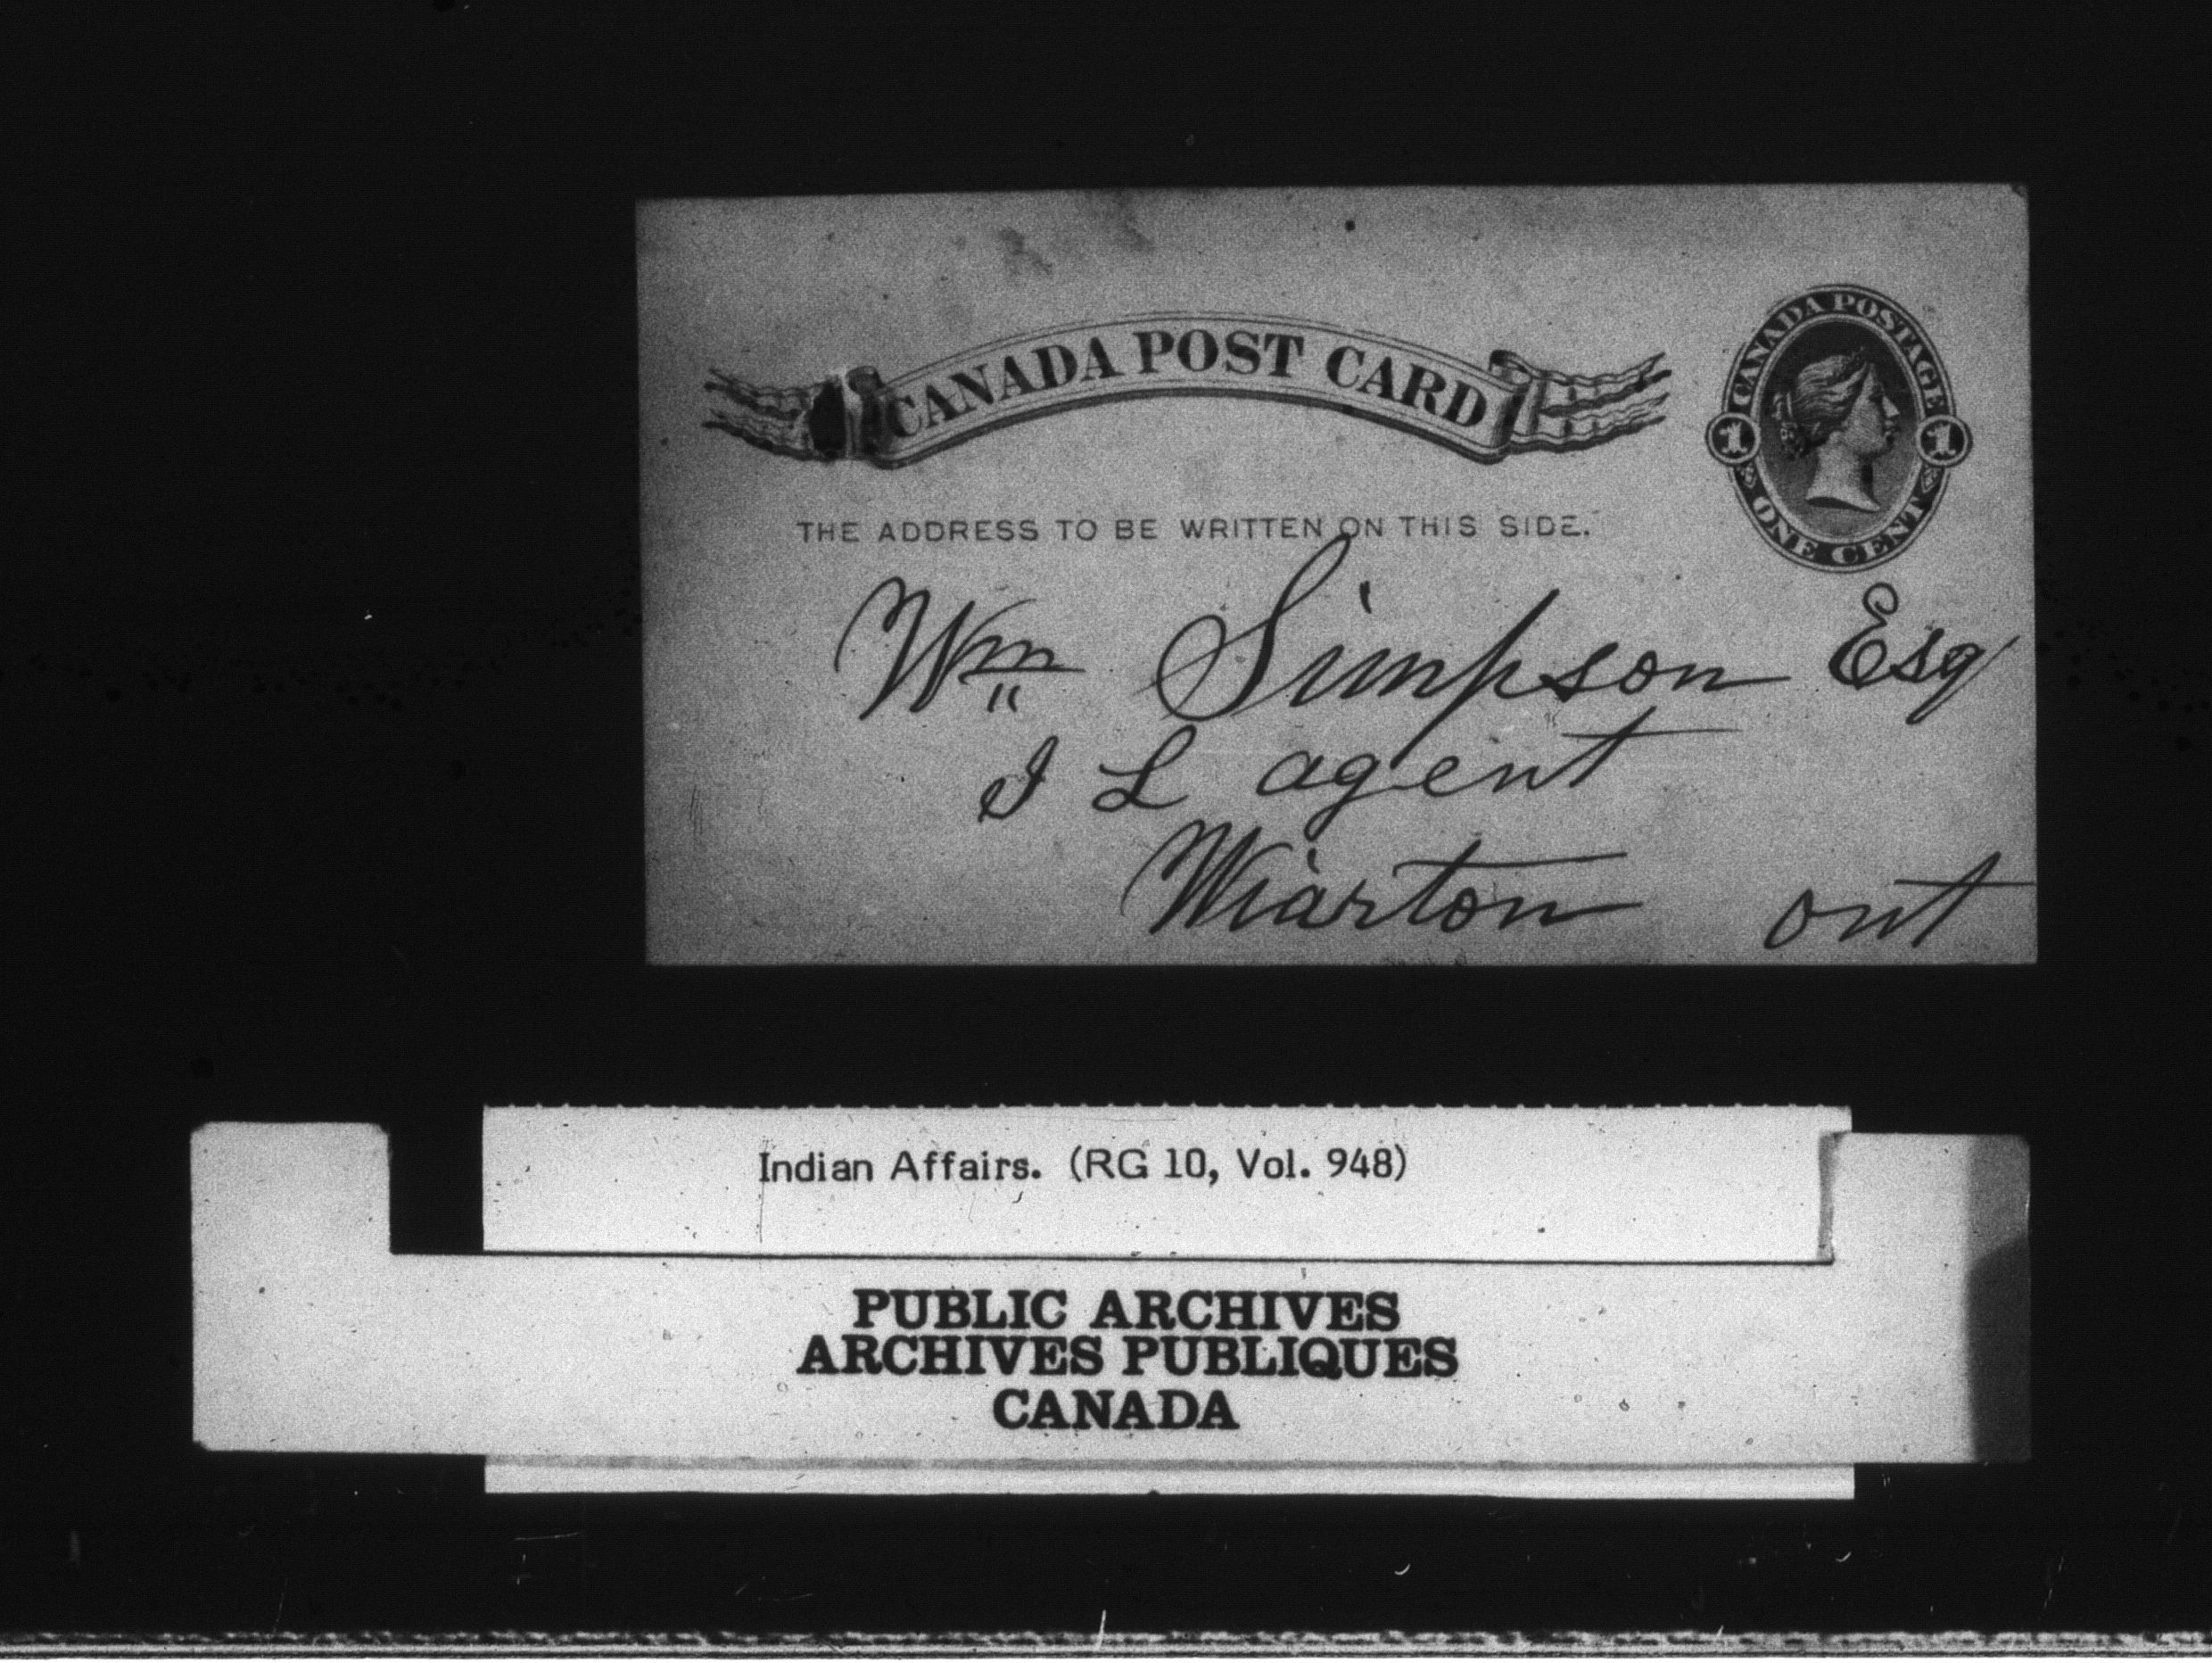 CANADA POST CARD
CANADA POSTAGE
1 1
ONE CENT
THE ADDRESS TO BE WRITTEN ON THIS SIDE.
Wm Simpson Esq
I L agent
Wiarton ont
Indian Affairs. (RG 10, Vol. 948)
PUBLIC ARCHIVES
ARCHIVES PUBLIQUES
CANADA